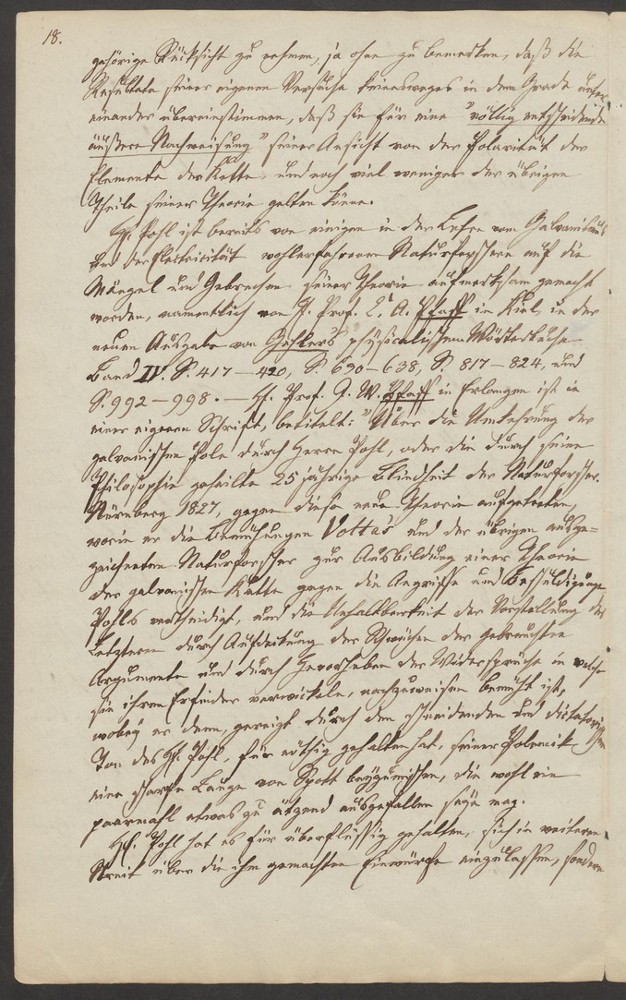 18.
gehörige Rücksicht zu nehmen, ja ohne zu bemerken, daß die
Resultate seiner eigenen Versuche keineswegs in dem Grade unter
einander übereinstimmen, daß sie für eine "völlig entscheidende
äußere Nachweisung" seiner Ansicht von der Polarität der
Elemente der Kette und noch viel weniger der übrigen
Theile seiner Theorie gelten könne.
Hr. Pohl ist bereits von einigen in der Lehre vom Galvanismus
und der Elektricität wohlerfahrenen Naturforschern auf die
Mängel und Gebrechen seiner Theorie aufmerksam gemacht
worden, namentlich von H. Prof. C. A. Pfaff in Kiel, in der
neuen Ausgabe von Gehler's physicalischem Wörterbuche
Band IV. S. 417–420, S. 630–638, S. 817–824, und
S. 992–998. – Hr. Prof. J. W. Pfaff in Erlangen ist in
einer eigenen Schrift, betitelt: "Über die Umkehrung der
galvanischen Pole durch Herrn Pohl, oder die durch seine
Philosophie geheilte 25jährige Blindheit der Naturforscher.
Nürnberg 1827, gegen diese neue Theorie aufgetreten,
worin er die Bemühungen Volta's und der übrigen ausge=
zeichneten Naturforscher zur Ausbildung einer Theorie
der galvanischen Kette gegen die Angriffe und Beschuldigungen
Pohls vertheidigt, und die Unhaltbarkeit der Vorstellung des
Letztern durch Aufdeckung der Schwächen der gebrauchten
Argumente und durch Hervorheben der Widersprüche in welche
sie ihren Erfinder verwickeln, nachzuweisen bemüht ist,
wobey er denn, gereizt durch den schneidenden und dictatorischen
Ton des H. Pohl, für nöthig gehalten hat, seiner Polemik
eine scharfe Lauge von Spott beyzumischen, die wohl ein
paarmahl etwas zu ätzend ausgefallen seyn mag.
Hr. Pohl hat es für überflüssig gehalten, sich in weiteren
Streit über die ihm gemachten Einwürfe einzulassen, sondern